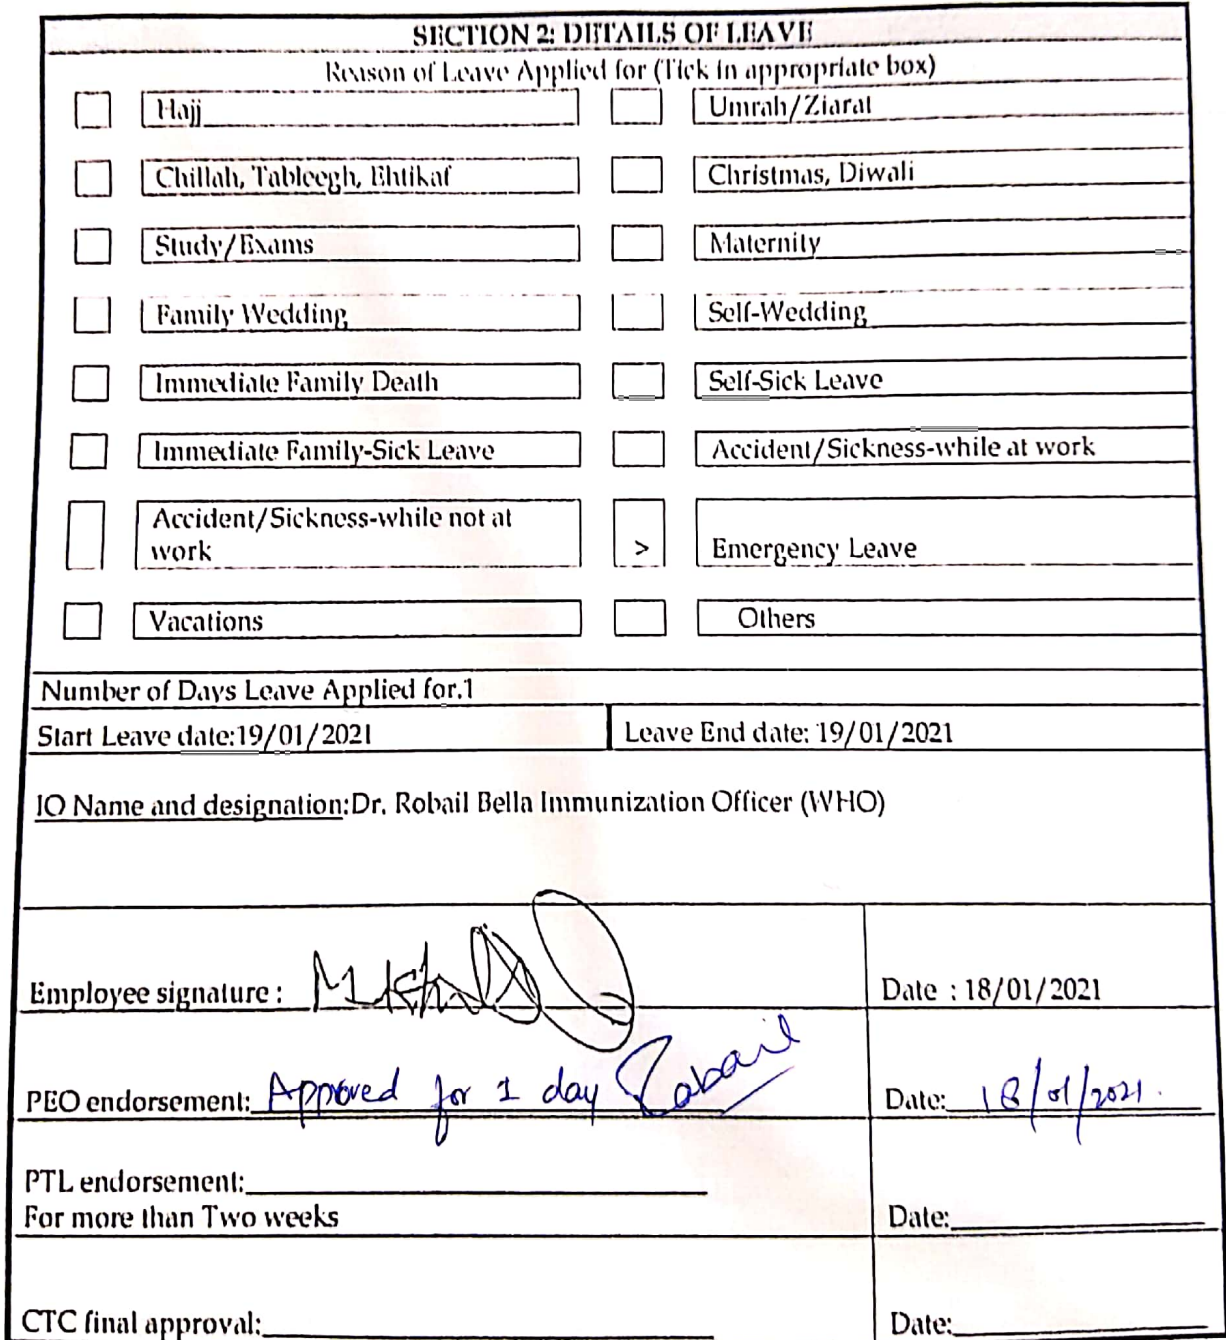 SECTION 2: DETAILS OF LEAVE
Reason of Leave Applied for (Tick in appropriate box)
Hajj Umrah/Ziarat
Chillah, Tableegh, Ehtikaf Christmas, Diwali
Study/Exams Maternity
Family Wedding Self-Wedding
Immediate Family Death Self-Sick Leave
Immediate Family-Sick Leave Accident/Sickness-while at work
Accident/Sickness-while not at
work > Emergency Leave
Vacations Others
Number of Days Leave Applied for.1
Start Leave date:19/01/2021 Leave End date: 19/01/2021
IO Name and designation:Dr. Robail Bella Immunization Officer (WHO)
Employee signature : Date : 18/01/2021
PEO endorsement: Approved for 1 day Robail Date: 18/01/2021.
PTL endorsement:
For more than Two weeks Date:
CTC final approval: Date: